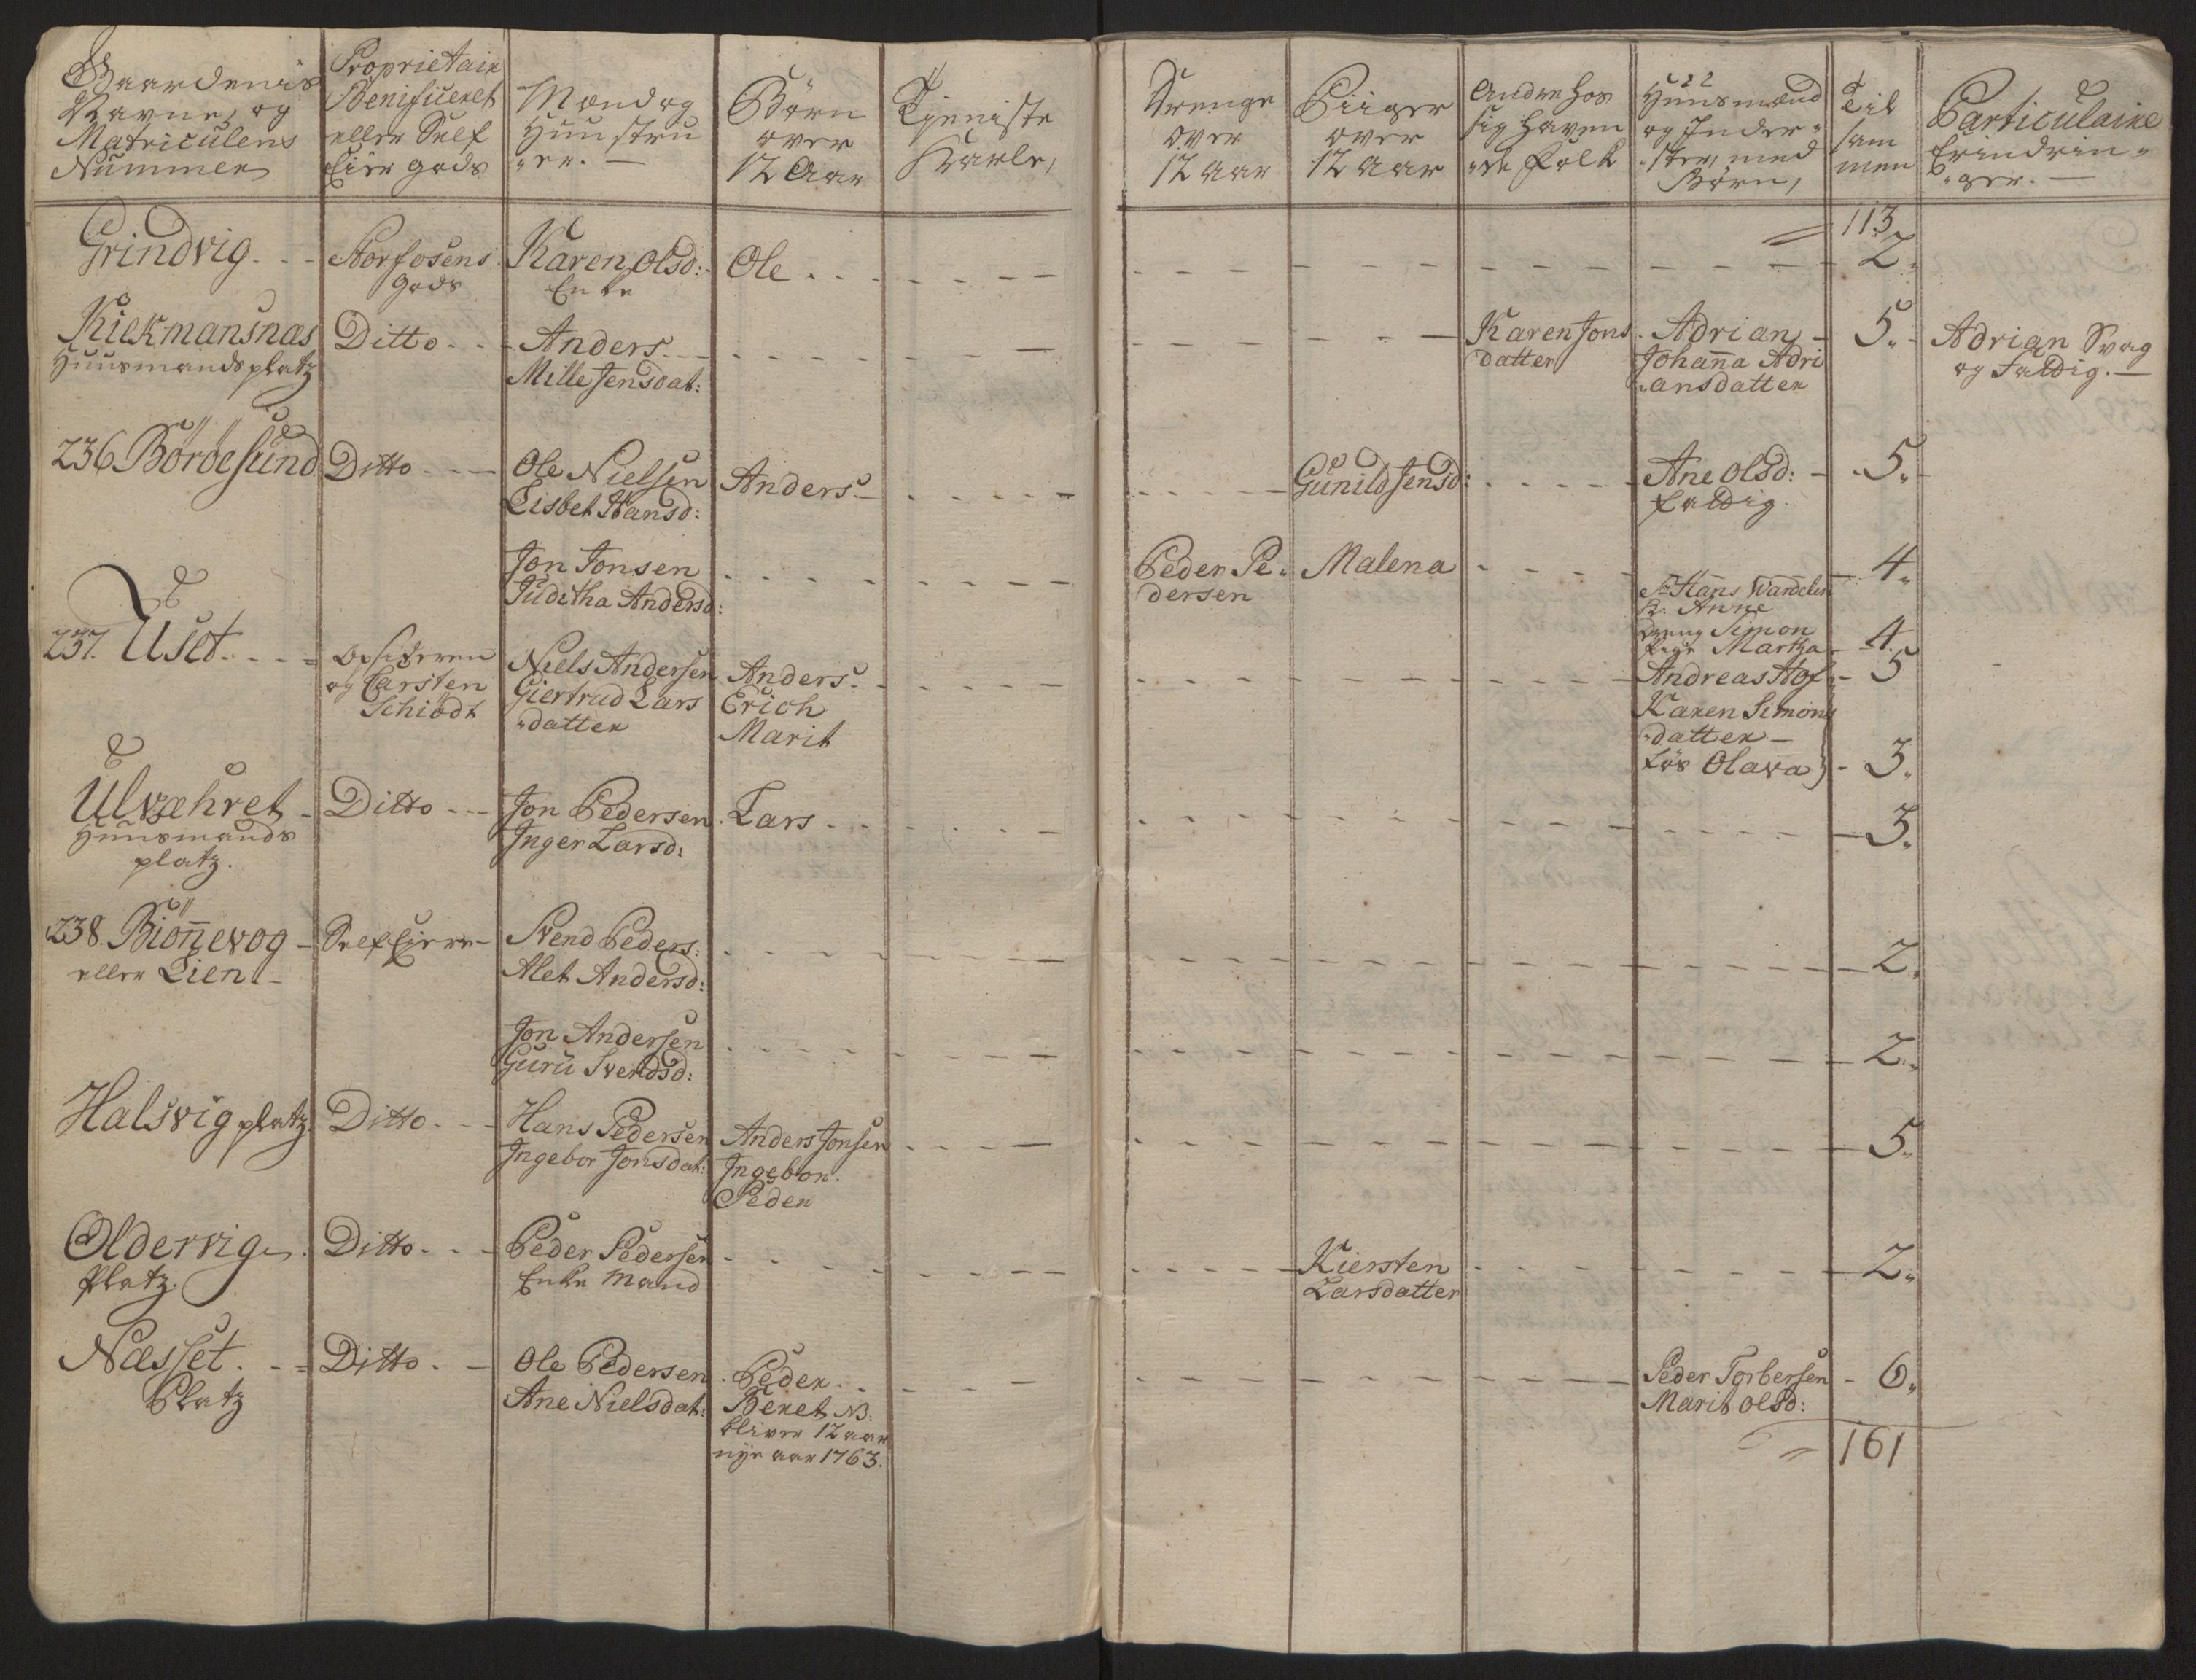 Gaardenis Navne, og Matriculens Nummer
Proprietair Benificeret eller Self Eier gods
Mænd og Huustruer. —
Børn over 12 Aar
Tjeniste Karle,
Drenge over 12 Aar
Piiger over 12 Aar
Andre hos sig havende Folk
Huusmænd og Inderster, med Børn,
Til sammen
Particulaire Erindringer. —
113
Grindvig
Storfosens Gods
Karen Olsd:
Enke
Ole
2
Kiekmansnæs
Huusmandsplatz
Ditto
Anders
Mille Jensdat:
Karen Jons
datter
Adrian
Johanna Adri
ansdatter
5
Adrian Svag
og Fattig. —
236 Böröesund
Ditto
Ole Nielsen
Lisbet Hansd:
Anders
Gunild Jensd:
Ane Olsd:
Fattig.
5
Jon Jonsen
Juditha Andersd:
Peder Pe
dersen
Malena
4
237. Uset
Opsideren
og Carsten
Schiødt
Niels Andersen
Giertrud Lars
datter
Anders
Erich
Marit
Hans Wandelin
Anne
Dreng Simon
Pige Martha
4
Andreas Hof
5
Karen Simons
datter —
Løs Olava
3
Ulvæhret
Huusmands
platz.
Ditto
Jon Pedersen
Inger Larsd:
Lars
3
238. Biönnevog
eller Lien
Self Eiere
Svend Peders:
Alet Andersd:
2
Jon Andersen
Guru Svendsd:
2
Halsvig platz
Ditto
Hans Pedersen
Ingebor Jonsdat:
Anders Jonsen
Ingebor.
Peder
5
Oldervig
Platz.
Ditto
Peder Pedersen
Enke Mand
Kiersten
Larsdatter
2
Næsset
Platz
Ditto
Ole Pedersen
Ane Nielsdat:
Peder
Beret NB:
bliver 12 aar
nye aar 1763.
Peder Torbersen
Marit Olsd:
6
161